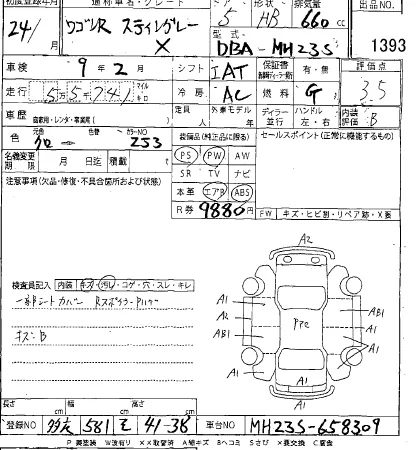 初度登録年月 通称車名・グレード ドア 形状 排気量 出品NO.
24/ ワゴンR スティングレー X 5 HB 660 cc
型式 DBA-MH23S 1393
車検 9年2月 シフト IAT 有・無 評価点
走行 55741 マイル キロ 冷房 AC 燃料 G 3.5
車歴 自家用・レンタ・事業用( ) 定員 人 外車モデル ディーラー 並行 ハンドル 左・右 内装評価 B
色 元色 クロー 色替 カラーNO Z53 装備品(純正品に限る) セールスポイント(正常に機能するもの)
名義変更期限 月 日迄 積載 t PS PW AW
SR TV ナビ
注意事項(欠品・修復・不具合箇所および状態) 本革 エアB ABS
R券 9880円 FW キズ・ヒビ割・リペア跡・X要
A2
検査員記入 内装 キズ・汚れ・コゲ・穴・スレ・キレ
A1 A1
シートカバー A2 AB1
AB1 A1
キズ:B
A1 A1
A1
長さ cm 幅 cm 高さ cm
登録NO 581 41-38 車台NO MH23S-658309
P 要塗装 W波有り XX取替済 A線キズ Bヘコミ Sさび X要交換 C腐食